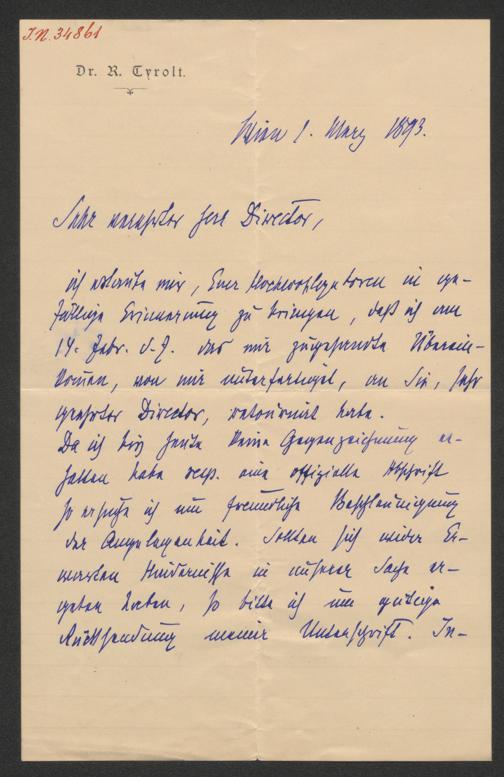 I.N. 34861
Dr. R. Tyrolt.
Wien 1. März 1893.
Sehr verehrter Herr Director,
ich erlaube mir, Euer Hochwohlgeboren in ge-
fällige Erinnerung zu bringen, daß ich am
14. Febr. d. J. das mir zugesandte Überein-
komen, von mir unterfertiget, an Sie, sehr
geehrter Director, retournirt habe.
Da ich bis heute keine Gegenzeichnung er-
halten habe resp. eine offizielle Abschrift
so ersuche ich um freundliche Beschleunigung
der Angelegenheit. Sollten sich wider Er-
warten Hindernisse in unserer Sache er-
geben haben, so bitte ich um gütige
Rücksendung meiner Unterschrift. In-